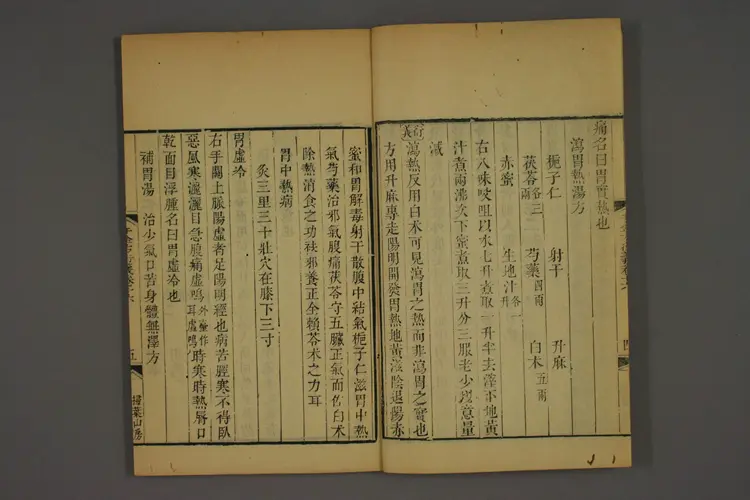 痛名曰胃實熱也
瀉胃熱湯方
梔子仁 射干 升麻
茯苓各三兩 芍藥四兩 白朮五兩
赤蜜 生地汁各一升
右八味㕮咀以水七升煮取一升半去滓下地黃
汁煮兩沸次下蜜煮取三升分三服老少以意量
減
衍義
瀉熱反用白朮可見瀉胃之熱而非瀉胃之實也
方用升麻專走陽明開發胃熱地黃滋陰退陽赤
蜜和胃解毒射干散腹中結氣梔子仁滋胃中熱
氣芍藥治邪氣腹痛茯苓守五臟正氣而佐白朮
除熱消食之功袪邪養正全賴苓朮之力耳
胃中熱病
灸三里三十壯穴在膝下三寸
胃虛冷
右手關上脈陽虛者足陽明經也病苦脛寒不得臥
惡風寒灑灑目急腹痛虛鳴外臺作耳虛鳴時寒時熱唇口
乾面目浮腫名曰胃虛冷也
補胃湯 治少氣口苦身體無澤方
五
掃葉山房